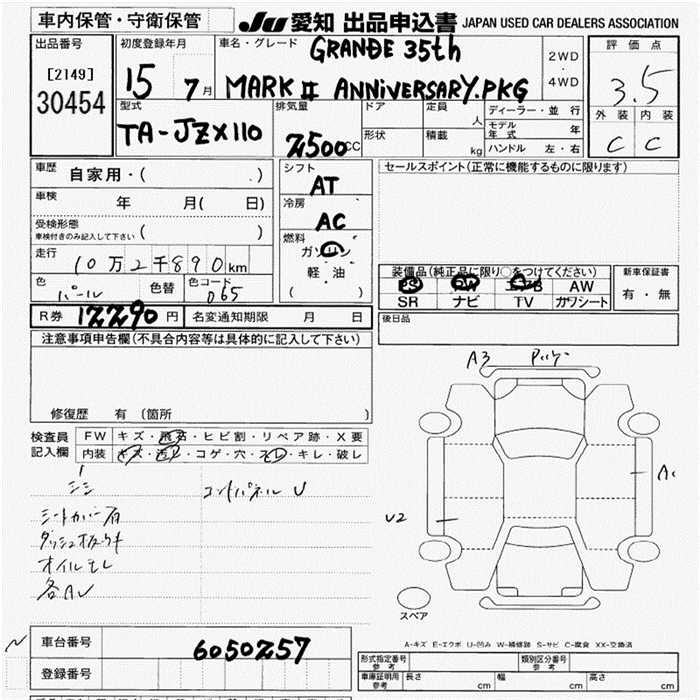 車内保管・守衛保管
JU 愛知 出品申込書 JAPAN USED CAR DEALERS ASSOCIATION
出品番号
[2149]
30454
初度登録年月
15 7月
車名・グレード
GRANDE 35th
MARK II ANNIVERSARY.PKG
2WD
・
4WD
評価点
3.5
外装 内装
C C
型式
TA-JZX110
排気量
2500CC
ドア
形状
定員 人
積載 kg
ディーラー・並行
モデル年式 年
ハンドル 左・右
車歴
自家用・( )
車検
年 月( 日)
受検形態
車検付きのみ記入して下さい ( )
走行
10万2千890km
色
パール
色替
色コード
065
シフト
AT
冷房
AC
燃料
ガソリン
軽・油
( )
セールスポイント(正常に機能するものに限ります)
装備品(純正品に限り○をつけてください)
PS PW エアB AW
SR ナビ TV カワシート
新車保証書
有・無
R券 12290円
名変通知期限 月 日
後日品
注意事項申告欄(不具合内容等は具体的に記入して下さい)
修復歴 有 (箇所 )
検査員
記入欄
FW キズ・飛石・ヒビ割・リペア跡・X要
内装 キズ・汚れ・コゲ・穴・スレ・キレ・破レ
シートカバー有
オイルモレ
各AU
コントパネル U
A3
U2
スペア
A-キズ E-エクボ U-凹み W-補修跡 S-サビ C-腐食 XX-交換済
車台番号
6050257
登録番号
形式指定番号
参考
類別区分番号
参考
車庫証明用
参考
長さ cm
幅 cm
高さ cm